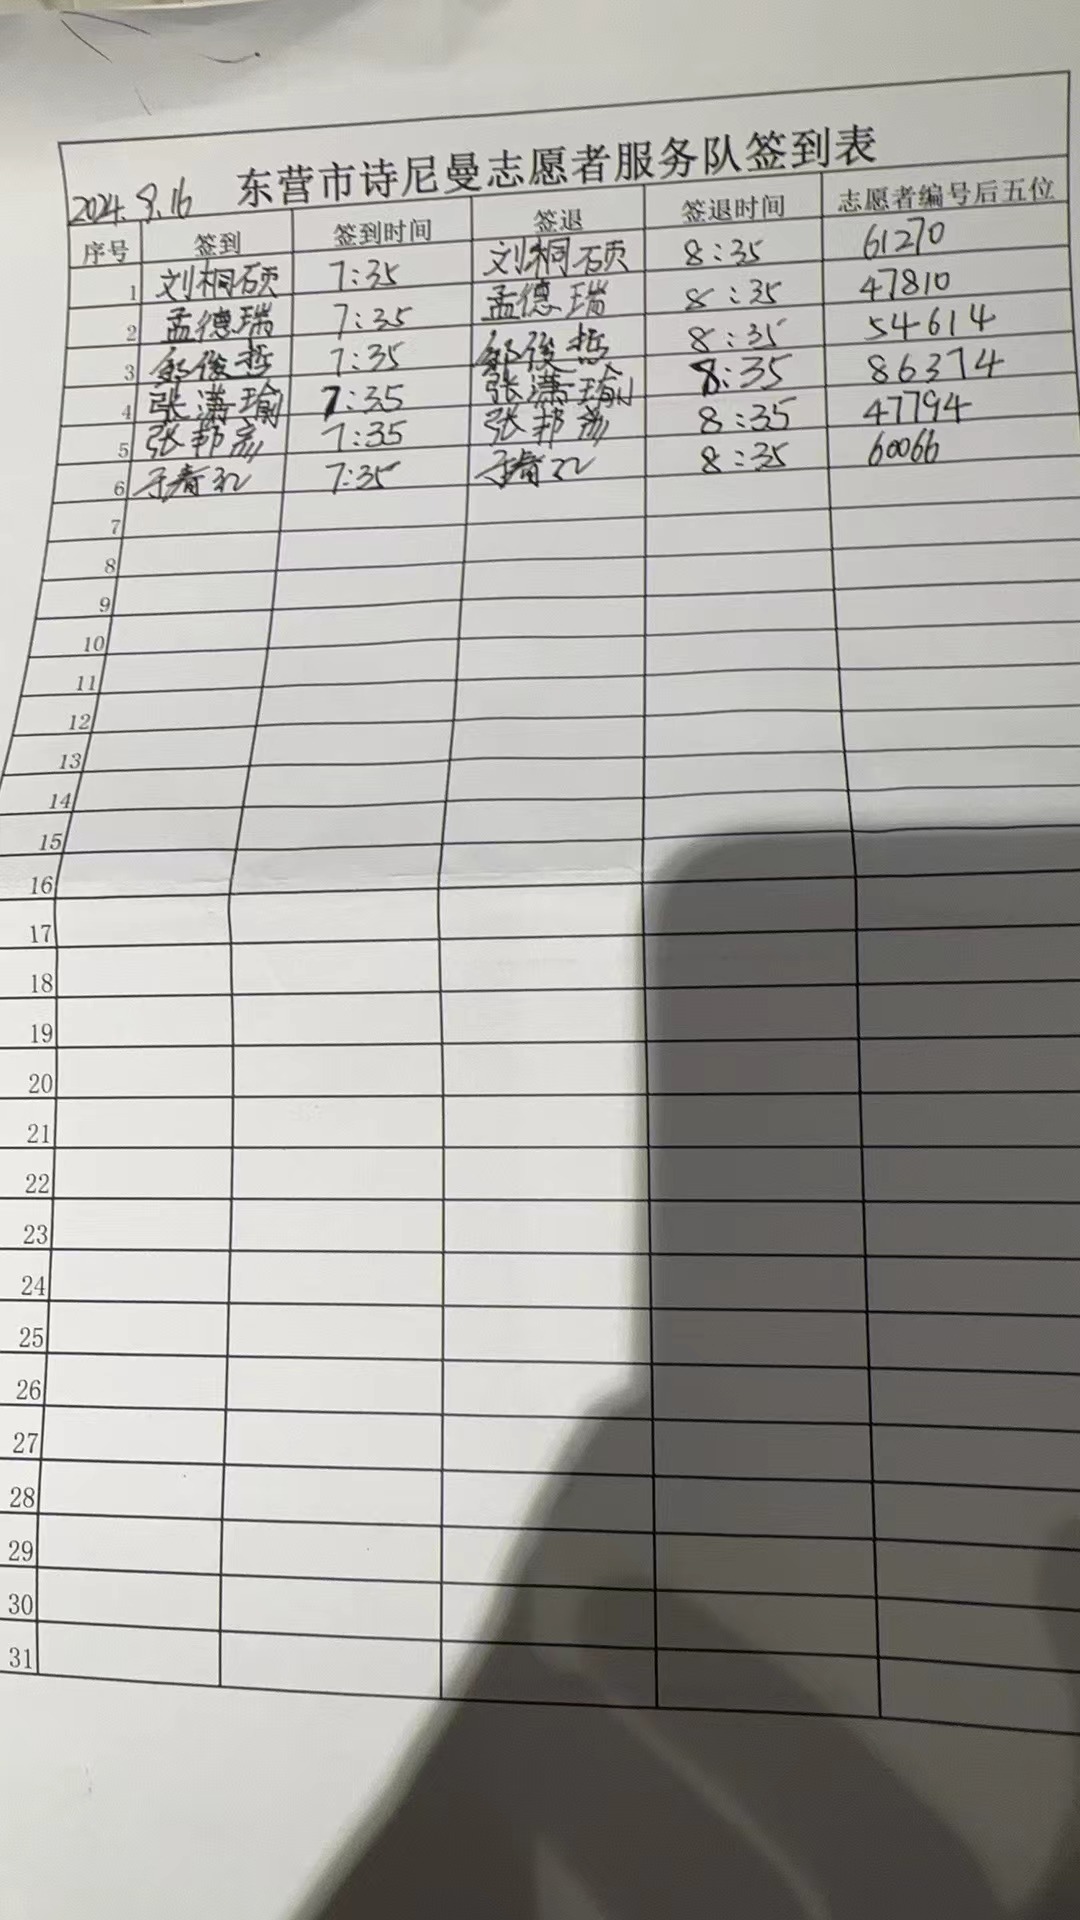 东营市诗尼曼志愿者服务队签到表
2024.8.16
序号 签到 签到时间 签退 签退时间 志愿者编号后五位
1 刘桐硕 7:35 刘桐硕 8:35 61270
2 孟德瑞 7:35 孟德瑞 8:35 47810
3 俊哲 7:35 俊哲 8:35 54614
4 张潇瑜 7:35 张潇瑜 8:35 86374
5 张邦 7:35 张邦 8:35 47794
6 7:35 8:35 60066
7
8
9
10
11
12
13
14
15
16
17
18
19
20
21
22
23
24
25
26
27
28
29
30
31